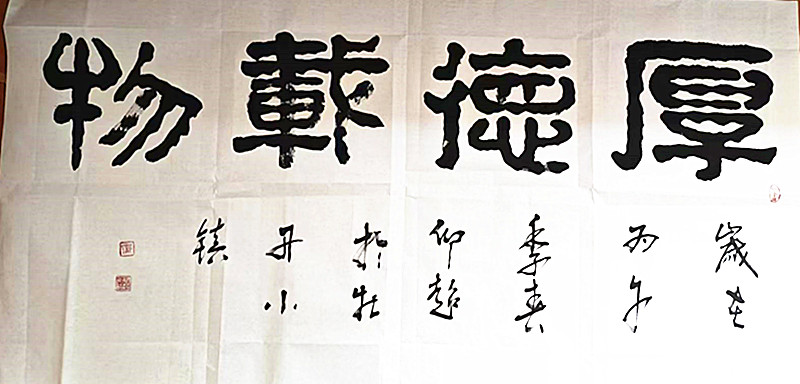 厚德載物
歲在
丙午
季春
仰超
於牡
丹小
鎮